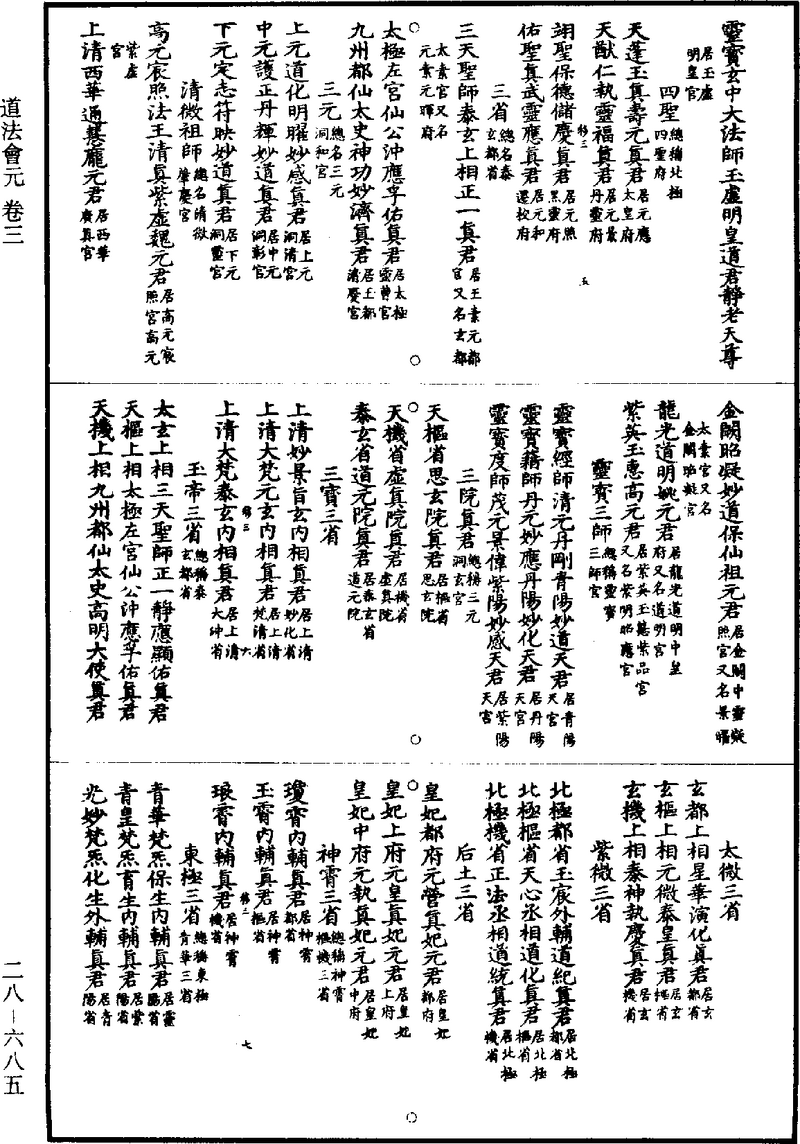 靈寶玄中大法師玉虛明皇道君靜老天尊
居玉虛
明皇宮
四聖
總稱北極
四聖府
天蓬玉真壽元真君
居元應
太皇府
天猷仁執靈福真君
居元景
丹靈府
翊聖保德儲慶真君
居元照
黑靈府
佑聖真武靈應真君
居元和
遷校府
三省
總名泰
玄都省
三天聖師泰玄上相正一真君
居玉素元都
官又名玄都
太素宮又名
元素元暉府
太極左宮仙公沖應孚佑真君
居太極
靈曹宮
九州都仙太史神功妙濟真君
居玉都
清慶宮
三元
總名三元
洞和宮
上元道化明曜妙感真君
居上元
洞清宮
中元護正丹輝妙道真君
居中元
洞彰宮
下元定志符映妙道真君
居下元
洞靈宮
清微祖師
總名清微
肇慶宮
高元宸照法王清真紫虛魏元君
居高元宸
照宮高元
紫虛
宮
上清西華通慧龐元君
居西華
廣真宮
五
金闕昭凝妙道保仙祖元君
居金闕中靈凝
照宮又名景曜
太素宮又名
金闕昭凝宮
龍光道明姚元君
居龍光道明中皇
府又名道明宮
紫英玉惠高元君
居紫英玉慧紫品宮
又名紫明昭應宮
靈寶三師
總稱靈寶
三師宮
靈寶經師清元丹剛青陽妙道天君
居青陽
天宮
靈寶籍師丹元妙應丹陽妙化天君
居丹陽
天宮
靈寶度師茂元景偉紫陽妙感天君
居紫陽
天宮
三院真君
總稱三元
洞玄宮
天樞省思玄院真君
居樞省
思玄院
天機省虛真院真君
居機省
虛真院
泰玄省道元院真君
居泰玄省
道元院
三寶三省
上清妙景旨玄內相真君
居上清
妙化省
上清大梵元玄內相真君
居上清
梵清省
上清大梵泰玄內相真君
居上清
大神省
玉帝三省
總稱泰
玄都省
太玄上相三天聖師正一靜應顯佑真君
天樞上相太極左宮仙公沖應孚佑真君
天機上相九州都仙太史高明大使真君
六
太微三省
玄都上相星華演化真君
居玄
都省
玄樞上相元微泰皇真君
居玄
樞省
玄機上相泰神執慶真君
居玄
機省
紫微三省
北極都省玉宸外輔道紀真君
居北極
都省
北極樞省天心丞相道化真君
居北極
樞省
北極機省正法丞相道統真君
居北極
機省
后土三省
皇妃都府元營真妃元君
居皇妃
都府
皇妃上府元皇真妃元君
居皇妃
上府
皇妃中府元執真妃元君
居皇妃
中府
神霄三省
總稱神霄
樞機三省
瓊霄內輔真君
居神霄
都省
玉霄內輔真君
居神霄
樞省
琅霄內輔真君
居神霄
機省
東極三省
總稱東極
青華三省
青華梵炁保生內輔真君
居靈
陽省
青皇梵炁育生內輔真君
居紫
陽省
光妙梵炁化生外輔真君
居青
陽省
七
道法會元 卷三
二八－六八五